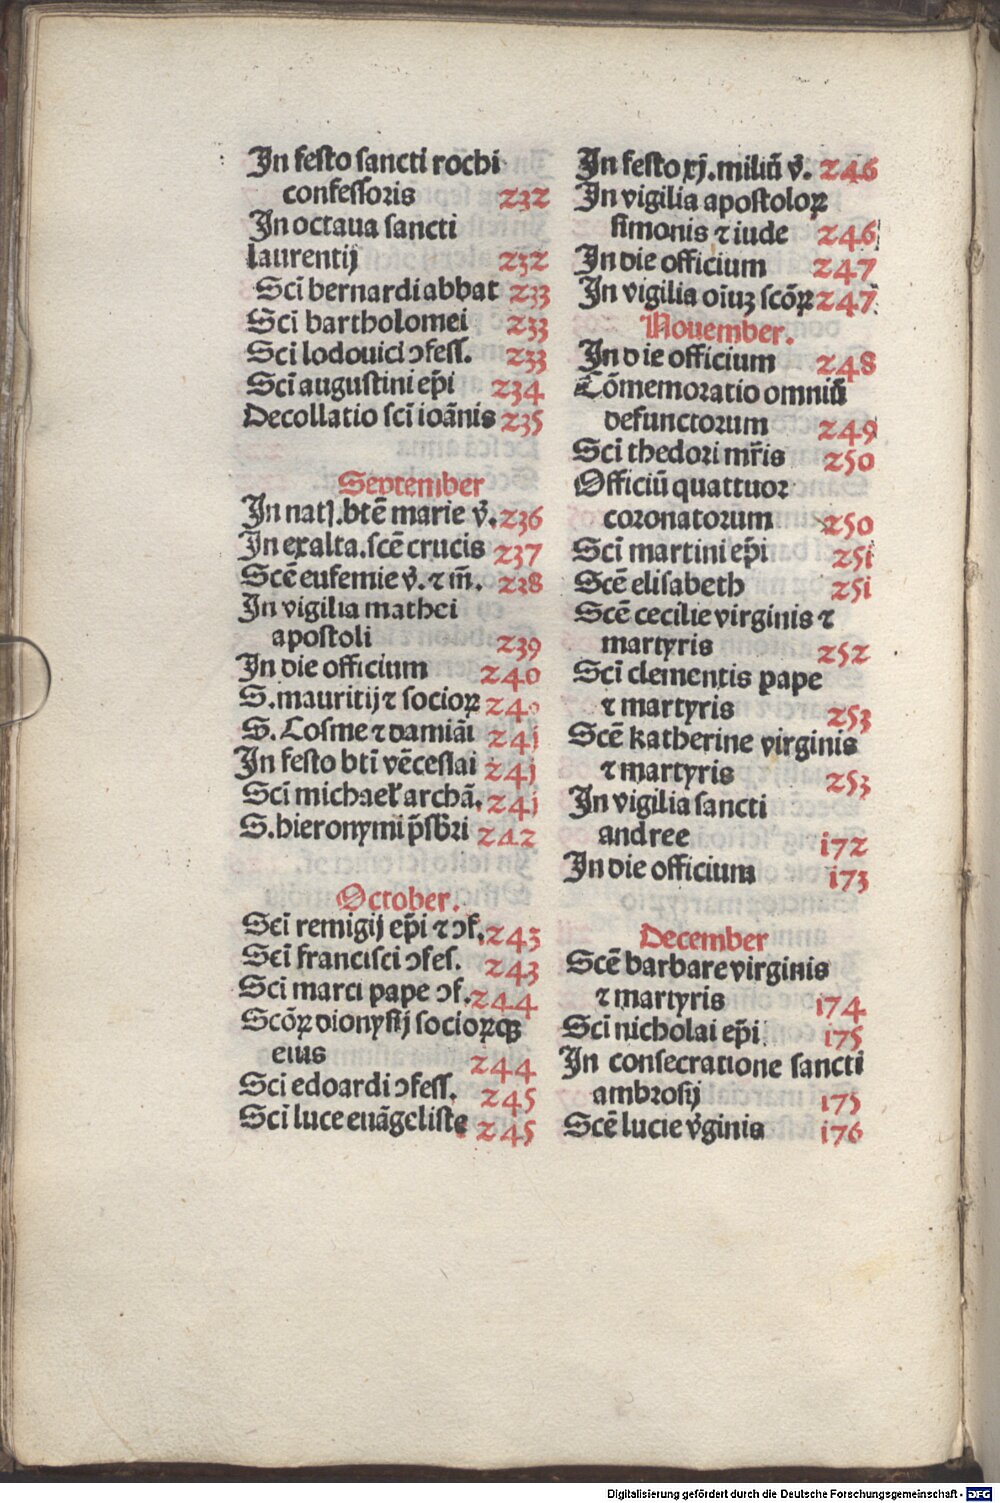 In festo sancti rochi
confessoris 232
In octaua sancti
laurentij 232
Sci̅ bernardi abbat 233
Sci̅ bartholomei 233
Sci lodouici ɔfess. 233
Sci̅ augustini ep̅i 234
Decollatio sci̅ ioa̅nis 235
September
In natꝭ. bte̅ marie v̅. 236
In exalta. sce̅ crucis 237
Sce̅ eufemie v̅. ⁊ m̅. 238
In vigilia mathei
apostoli 239
In die officium 240
S. mauritij ⁊ socioꝝ 240
S. Cosme ⁊ damia̅i 241
In festo bti̅ ve̅ceslai 241
Sci̅ michaeł archa̅. 241
S. hieronymi p̅sb̅ri 242
October.
Sci̅ remigij ep̅i ⁊ ɔf. 243
Sci̅ francisci ɔfes. 243
Sci marci pape ɔf. 244
Sco̅ꝝ dionysij socioꝝqꝫ
eius 244
Sci edoardi ɔfess. 245
Sci̅ luce eua̅geliste 245
In festo xj. miliu̅ v̅. 246
In vigilia apostoloꝝ
simonis ⁊ iude 246
In die officium 247
In vigilia oi̅uꝫ sco̅ꝝ 247
Nouember.
In die officium 248
Co̅memoratio omniu̅
defunctorum 249
Sci̅ thedori mr̅is 250
Officiu̅ quattuor
coronatorum 250
Sci̅ martini ep̅i 251
Sce̅ elisabeth 251
Sce̅ cecilie virginis ⁊
martyris 252
Sci̅ clementis pape
⁊ martyris 253
Sce̅ katherine virginis
⁊ martyris 253
In vigilia sancti
andree 172
In die officium 173
December
Sce̅ barbare virginis
⁊ martyris 174
Sci̅ nicholai ep̅i 175
In consecratione sancti
ambrosij 175
Sce̅ lucie v̅ginis 176
Digitalisierung gefördert durch die Deutsche Forschungsgemeinschaft - DFG